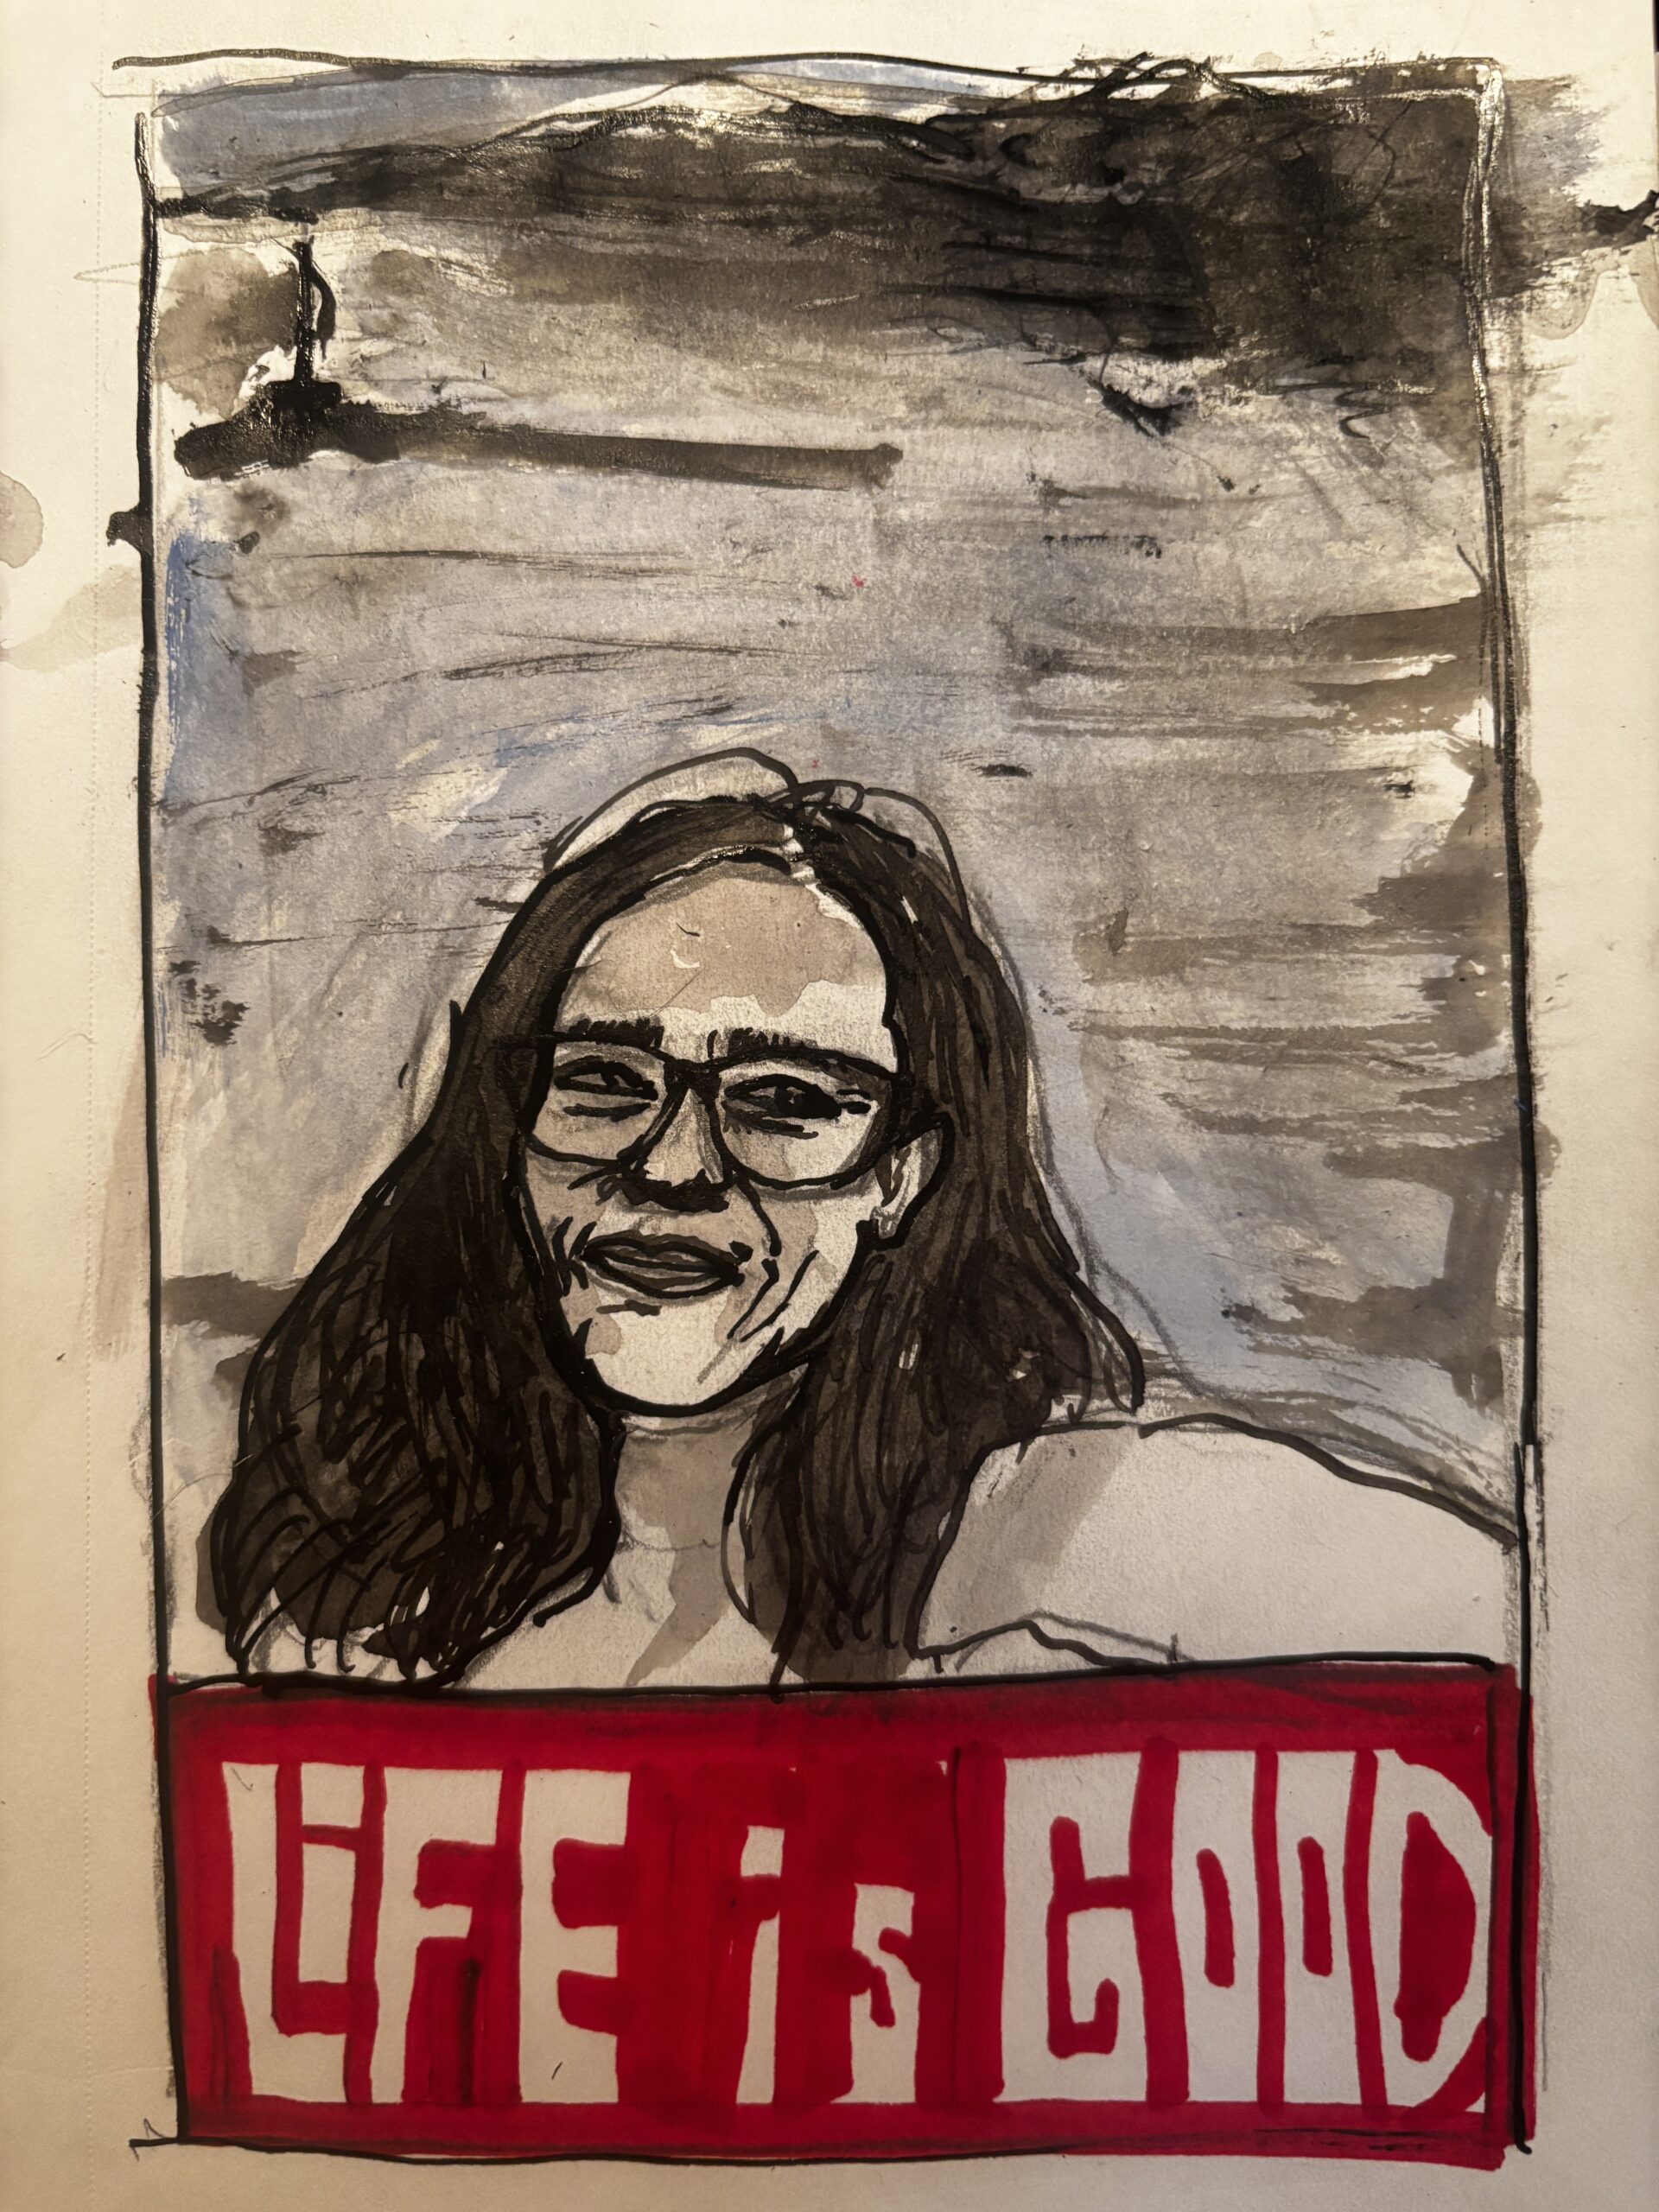 LiFE is GOOD